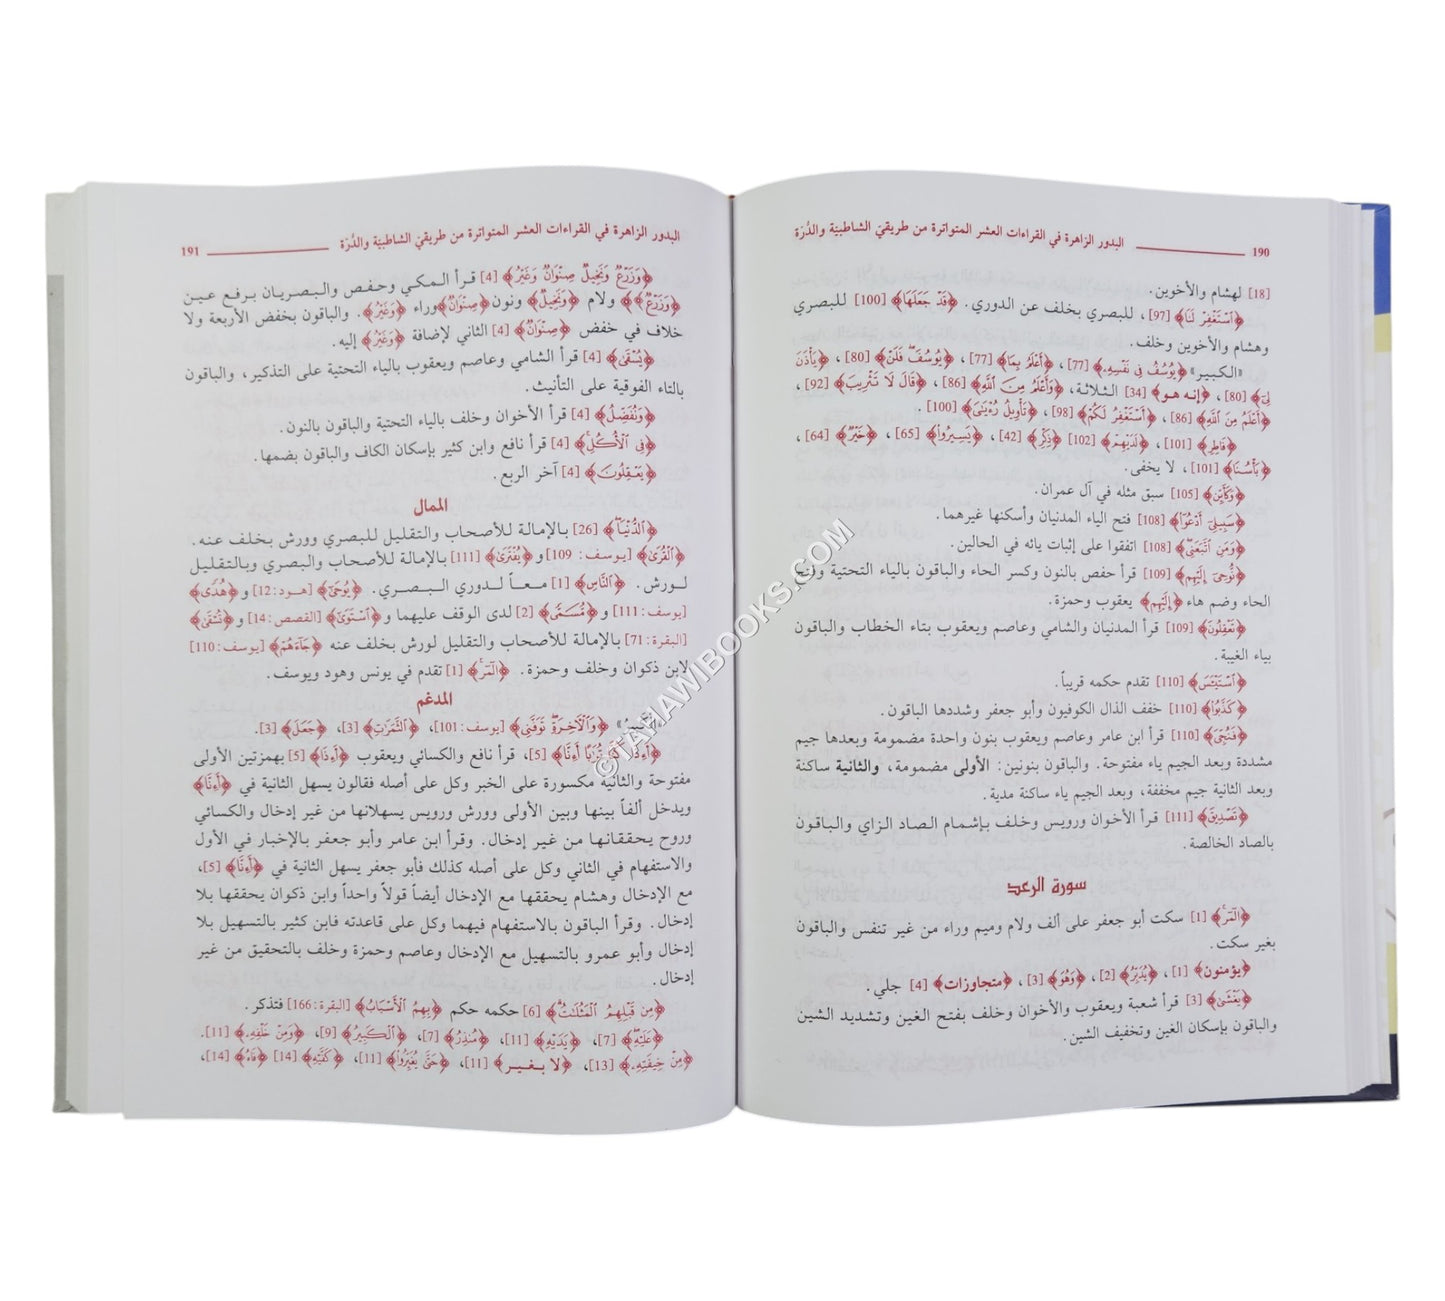 190 البدور الزاهرة في القراءات العشر المتواترة من طريقي الشاطبيّة والدُّرّة
[18] لهشام والأخوين.
﴿ٱسْتَغْفِرْ لَنَا﴾ [97]، للبصري بخلف عن الدوري. ﴿قَدْ جَعَلَهَا﴾ [100] للبصري
وهشام والأخوين وخلف.
«الكبير» ﴿يُوسُفُ فِى نَفْسِهِۦ﴾ [77]، ﴿أَعْلَمُ بِمَا﴾ [77]، ﴿يُوسُفَ فَلَن﴾ [80]، ﴿يَأْذَنَ
لِىٓ﴾ [80]، ﴿إنه هو﴾ [34] الثلاثة، ﴿وَأَعْلَمُ مِنَ ٱللَّهِ﴾ [86]، ﴿قَالَ لَا تَثْرِيبَ﴾ [92]،
﴿أَعْلَمُ مِنَ ٱللَّهِ﴾ [86]، ﴿أَسْتَغْفِرُ لَكُمْ﴾ [98]، ﴿تَأْوِيلُ رُءْيَٰىَ﴾ [100].
﴿فَاطِرَ﴾ [101]، ﴿لَدَيْهِمْ﴾ [102]، ﴿ذِكْرٌ﴾ [42]، ﴿يَسِيرُوا۟﴾ [65]، ﴿خَيْرٌ﴾ [64]،
﴿بَأْسُنَا﴾ [101]، لا يخفى.
﴿وَكَأَيِّن﴾ [105] سبق مثله في آل عمران.
﴿سَبِيلِىٓ أَدْعُوٓا۟﴾ [108] فتح الياء المدنيان وأسكنها غيرهما.
﴿وَمَنِ ٱتَّبَعَنِى﴾ [108] اتفقوا على إثبات يائه في الحالين.
﴿نُّوحِىٓ إِلَيْهِم﴾ [109] قرأ حفص بالنون وكسر الحاء والباقون بالياء التحتية وفتح
الحاء وضم هاء ﴿إِلَيْهِم﴾ يعقوب وحمزة.
﴿تَعْقِلُونَ﴾ [109] قرأ المدنيان والشامي وعاصم ويعقوب بتاء الخطاب والباقون
بياء الغيبة.
﴿ٱسْتَيْـَٔسَ﴾ [110] تقدم حكمه قريباً.
﴿كُذِبُوا۟﴾ [110] خفف الذال الكوفيون وأبو جعفر وشددها الباقون.
﴿فَنُجِّىَ﴾ [110] قرأ ابن عامر وعاصم ويعقوب بنون واحدة مضمومة وبعدها جيم
مشددة وبعد الجيم ياء مفتوحة. والباقون بنونين: الأولى مضمومة، والثانية ساكنة
وبعد الثانية جيم مخففة، وبعد الجيم ياء ساكنة مدية.
﴿تَصْدِيقَ﴾ [111] قرأ الأخوان ورويس وخلف بإشمام الصاد الزاي والباقون
بالصاد الخالصة.
سورة الرعد
﴿الٓمٓر﴾ [1] سكت أبو جعفر على ألف ولام وميم وراء من غير تنفس والباقون
بغير سكت.
﴿يؤمنون﴾ [1]، ﴿يُدَبِّرُ﴾ [2]، ﴿وَهُوَ﴾ [3]، ﴿متجاورات﴾ [4] جلي.
﴿يُغْشِى﴾ [3] قرأ شعبة ويعقوب والأخوان وخلف بفتح الغين وتشديد الشين
والباقون بإسكان الغين وتخفيف الشين.
البدور الزاهرة في القراءات العشر المتواترة من طريقي الشاطبيّة والدُّرّة 191
﴿وَزَرْعٌ وَنَخِيلٌ صِنْوَانٌ وَغَيْرُ﴾ [4] قرأ المكي وحفص والبصريان برفع عين
﴿وَزَرْعٌ﴾ ولام ﴿وَنَخِيلٌ﴾ ونون ﴿صِنْوَانٌ﴾ وراء ﴿وَغَيْرُ﴾. والباقون بخفض الأربعة ولا
خلاف في خفض ﴿صِنْوَانٌ﴾ [4] الثاني لإضافة ﴿وَغَيْرُ﴾ إليه.
﴿يُسْقَىٰ﴾ [4] قرأ الشامي وعاصم ويعقوب بالياء التحتية على التذكير، والباقون
بالتاء الفوقية على التأنيث.
﴿وَنُفَضِّلُ﴾ [4] قرأ الأخوان وخلف بالياء التحتية والباقون بالنون.
﴿فِى ٱلْأُكُلِ﴾ [4] قرأ نافع وابن كثير بإسكان الكاف والباقون بضمها.
﴿يَعْقِلُونَ﴾ [4] آخر الربع.
الممال
﴿ٱلدُّنْيَا﴾ [26] بالإمالة للأصحاب والتقليل للبصري وورش بخلف عنه.
﴿ٱلْقُرَىٰ﴾ [يوسف: 109] و﴿يُفْتَرَىٰ﴾ [111] بالإمالة للأصحاب والبصري وبالتقليل
لورش. ﴿ٱلنَّاسِ﴾ [1] معاً لدوري البصري. ﴿يُوحَىٰٓ﴾ [هود: 12] و﴿هُدًى﴾
[يوسف: 111] و﴿مُّسَمًّى﴾ [2] لدى الوقف عليهما و﴿ٱسْتَوَىٰ﴾ [القصص: 14] و﴿تُسْقَىٰ﴾
[البقرة: 71] بالإمالة للأصحاب والتقليل لورش بخلف عنه ﴿جَآءَهُمْ﴾ [يوسف: 110]
لابن ذكوان وخلف وحمزة. ﴿الٓمٓر﴾ [1] تقدم في يونس وهود ويوسف.
المدغم
﴿وَٱلْـَٔاخِرَةِ تَوَفَّنِى﴾ [يوسف: 101]، ﴿ٱلثَّمَرَٰتِ﴾ [3]، ﴿جَعَلَ﴾ [3].
﴿أَءِذَا كُنَّا تُرَٰبًا أَءِنَّا﴾ [5]، قرأ نافع والكسائي ويعقوب ﴿أَءِذَا﴾ [5] بهمزتين الأولى
مفتوحة والثانية مكسورة على الخبر وكل على أصله فقالون يسهل الثانية في ﴿أَءِنَّا﴾
ويدخل ألفاً بينها وبين الأولى وورش ورويس يسهلانها من غير إدخال والكسائي
وروح يحققانها من غير إدخال. وقرأ ابن عامر وأبو جعفر بالإخبار في الأول
والاستفهام في الثاني وكل على أصله كذلك فأبو جعفر يسهل الثانية في ﴿أَءِنَّا﴾ [5]،
مع الإدخال وهشام يحققها مع الإدخال أيضاً قولاً واحداً وابن ذكوان يحققها بلا
إدخال. وقرأ الباقون بالاستفهام فيهما وكل على قاعدته فابن كثير بالتسهيل بلا
إدخال وأبو عمرو بالتسهيل مع الإدخال وعاصم وحمزة وخلف بالتحقيق من غير
إدخال.
﴿مِن قَبْلِهِمُ ٱلْمَثُلَٰتُ﴾ [6] حكمه حكم ﴿بِهِمُ ٱلْأَسْبَابُ﴾ [البقرة: 166] فتذكر.
﴿عَلَيْهِ﴾ [7]، ﴿يَدَيْهِ﴾ [11]، ﴿مُنذِرٌ﴾ [7]، ﴿ٱلْكَبِيرُ﴾ [9]، ﴿وَمِنْ خَلْفِهِۦ﴾ [11].
﴿مِنْ خِيفَتِهِۦ﴾ [13]، ﴿لا بغير﴾ [11]، ﴿حَتَّىٰ يُغَيِّرُوا۟﴾ [11]، ﴿كَفَّيْهِ﴾ [14] ﴿فَاهُ﴾ [14]،
© TAHAWIBOOKS.COM